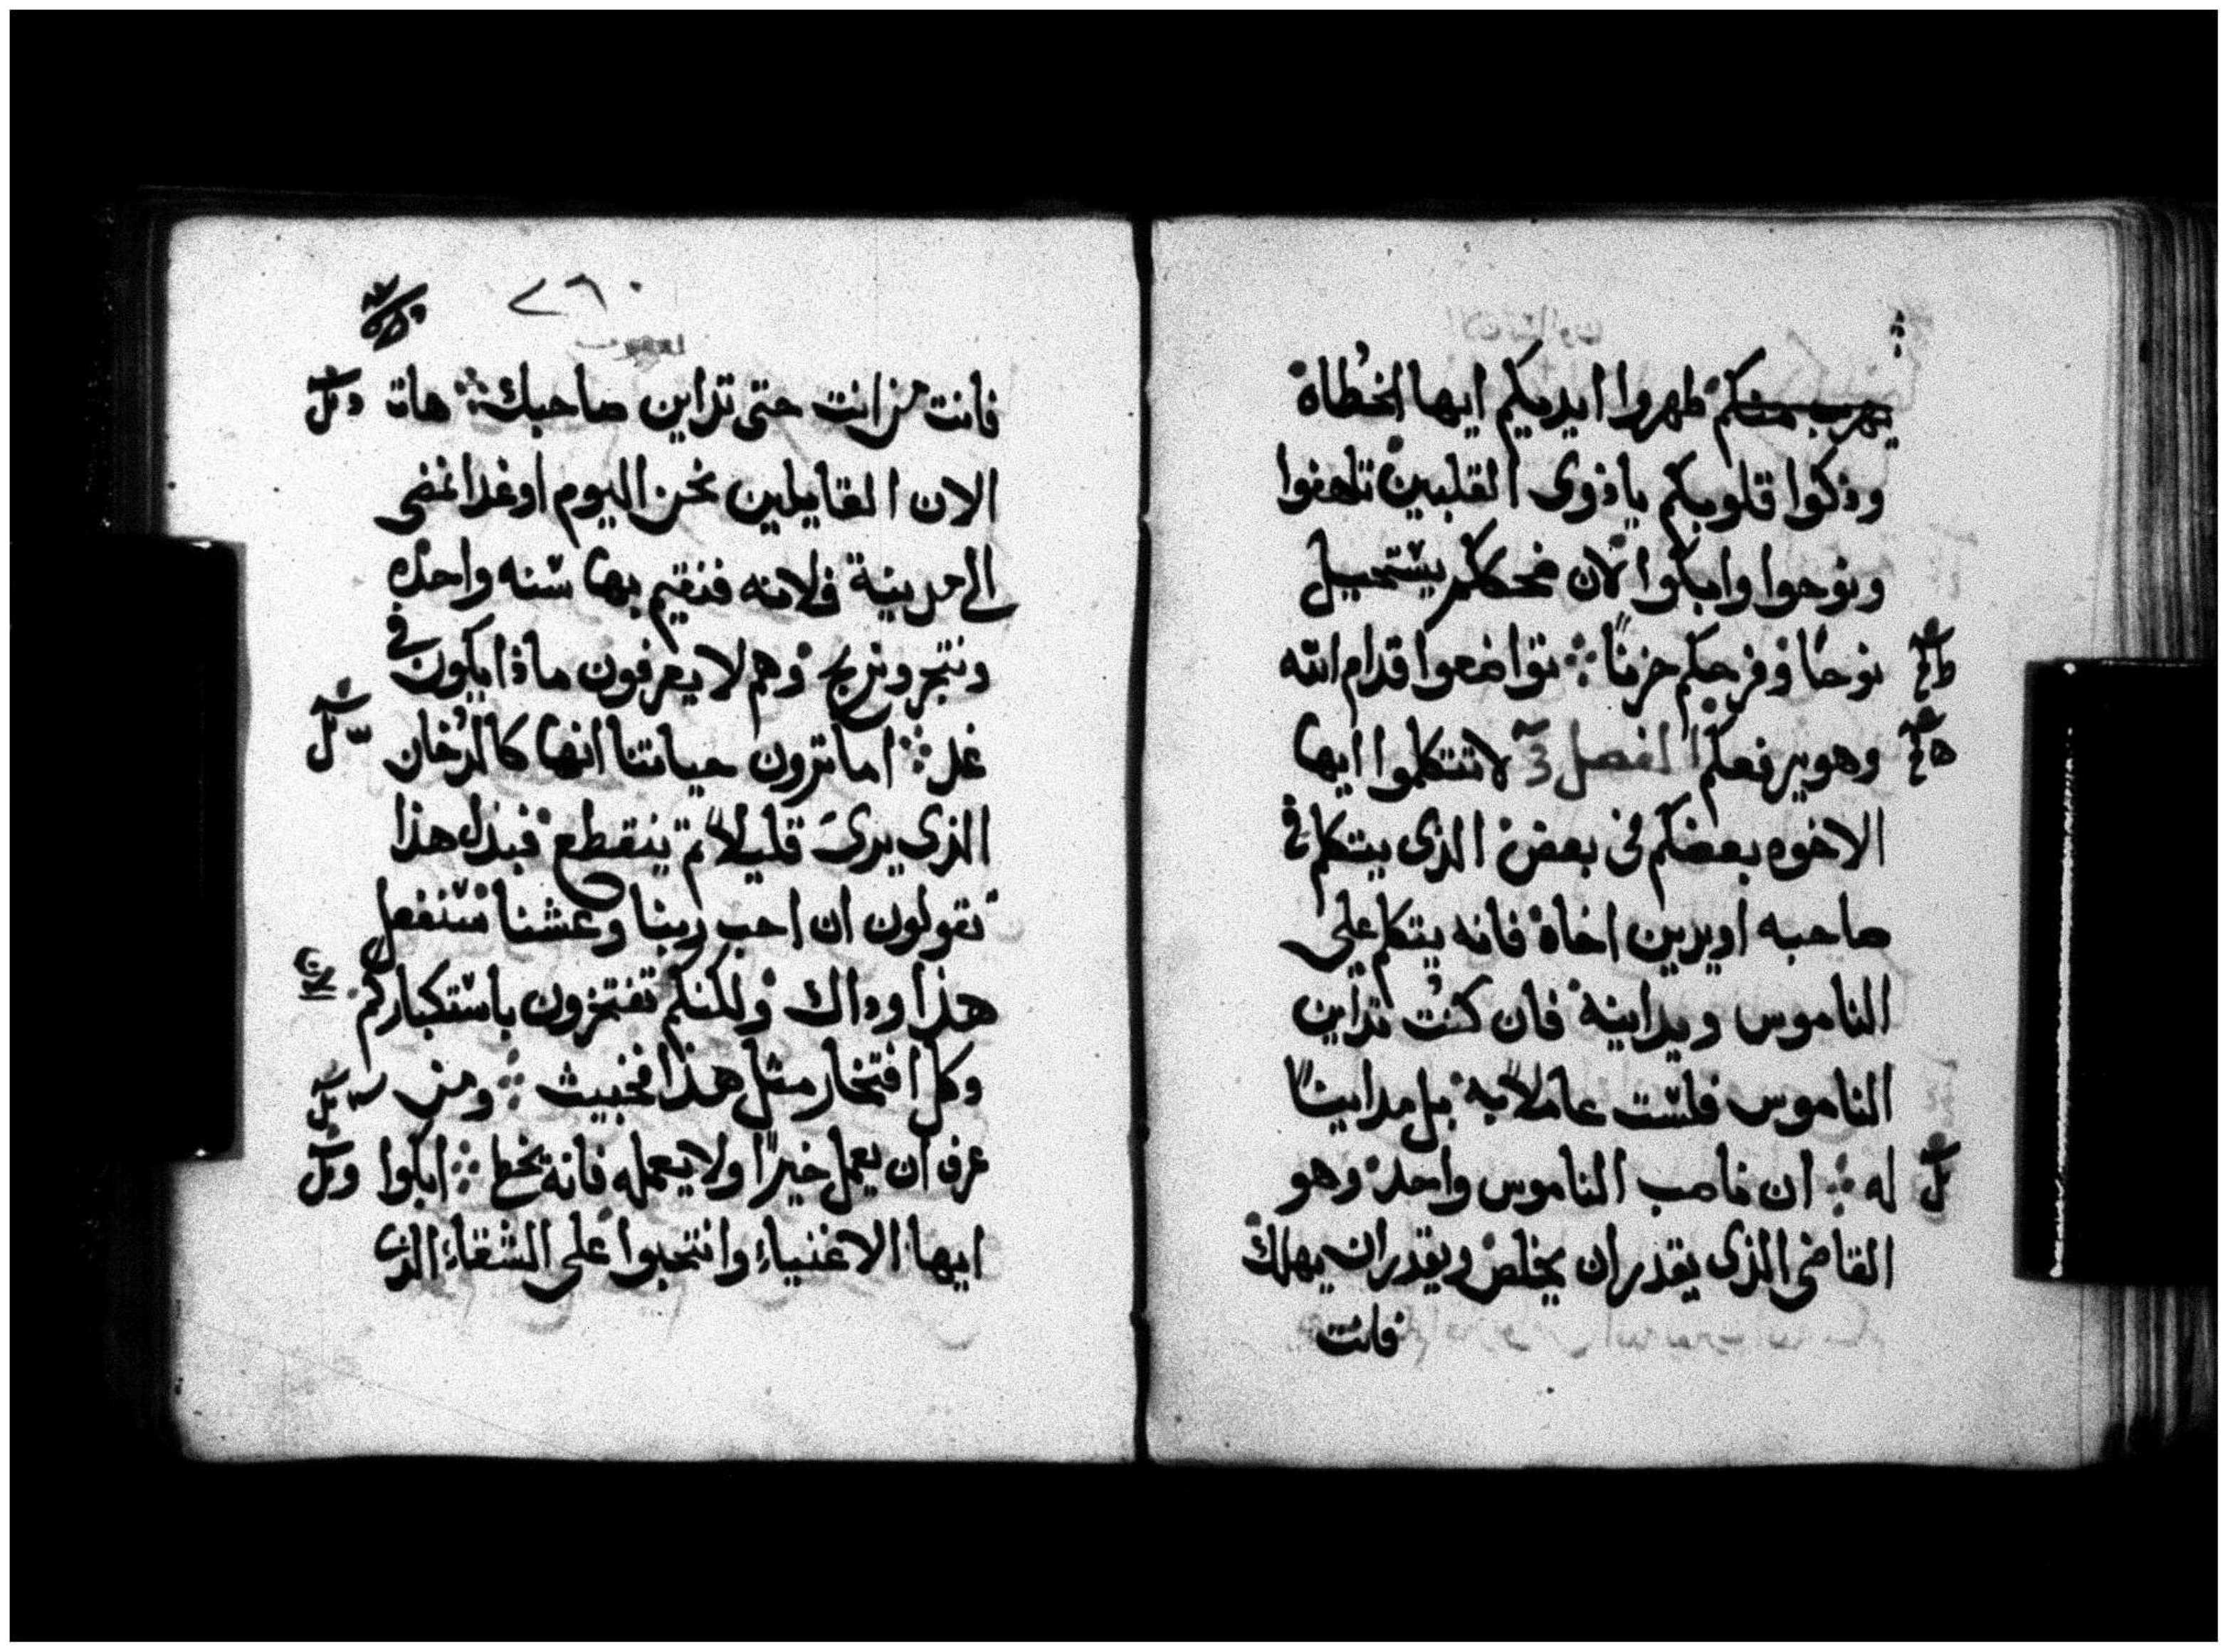 يهرب منكم طهروا ايديكم ايها الخُطاة
وذكوا قلوبكم ياذوى القلبين تلهفوا
ونوحوا وابكوا لان ضحككم يستحيل
نوحًا وفرحكم حزنًا تواضعوا قدام الله
وهو يرفعكم الفصل لا تتكلموا ايها
الاخوه بعضكم فى بعض الذى يتكلم فى
صاحبه او يدين اخاه فانه يتكلم على
الناموس ويداينه فان كنُت تداين
الناموس فلست عاملاً به بل مداينًا
له ان ناصب الناموس واحد وهو
القاضى الذى يقدر ان يخلص ويقدر ان يهلك
فانت
٢٦٠
يعقوب
فانت من انت حتى تداين صاحبك هات
الان القايلين نحن اليوم او غدا نمضى
الى مدينية فلانه فنقيم بها سنه واحده
ونتجر ونربح وهم لا يعرفون ماذا يكون فى
غد اما ترون حياتنا انها كالدُخان
الذى يرىَ قليلاً ثم ينقطع فبدل هذا
تقولون ان احب ربنا وعشنا سنفعل
هذا وذاك ولكنكم تفتخرون باستكباركم
وكل افتخار مثل هذا فخبيث ومن
عرف ان يعمل خيرًا ولا يعمله فانه يخط ابكوا
ايها الاغنياء وانتحبوا على الشقاء الذى